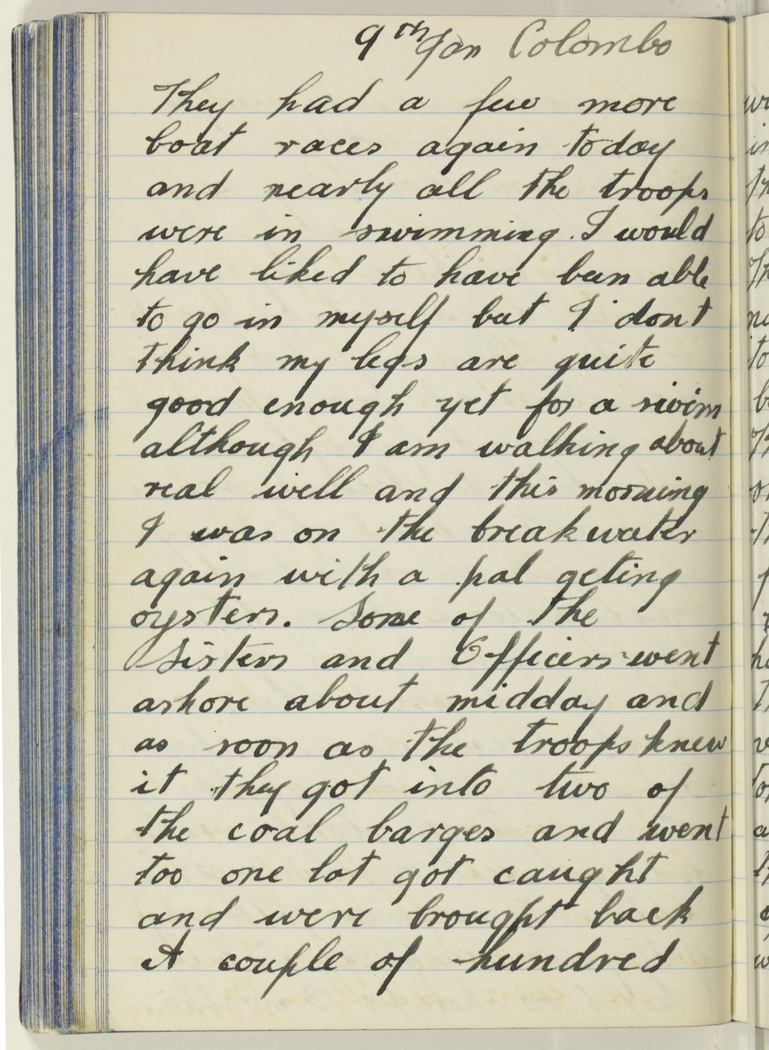 9th Jan Colombo
They had a few more
boat races again today
and nearly all the troops
were in swimming. I would
have liked to have been able
to go in myself but I don't
think my legs are quite
good enough yet for a swim
although I am walking about
real well and this morning
I was on the breakwater
again with a pal geting
oysters. Some of the
Sisters and Officers went
ashore about midday and
as soon as the troops knew
it they got into two of
the coal barges and went
too one lot got caught
and were brought back
A couple of hundred